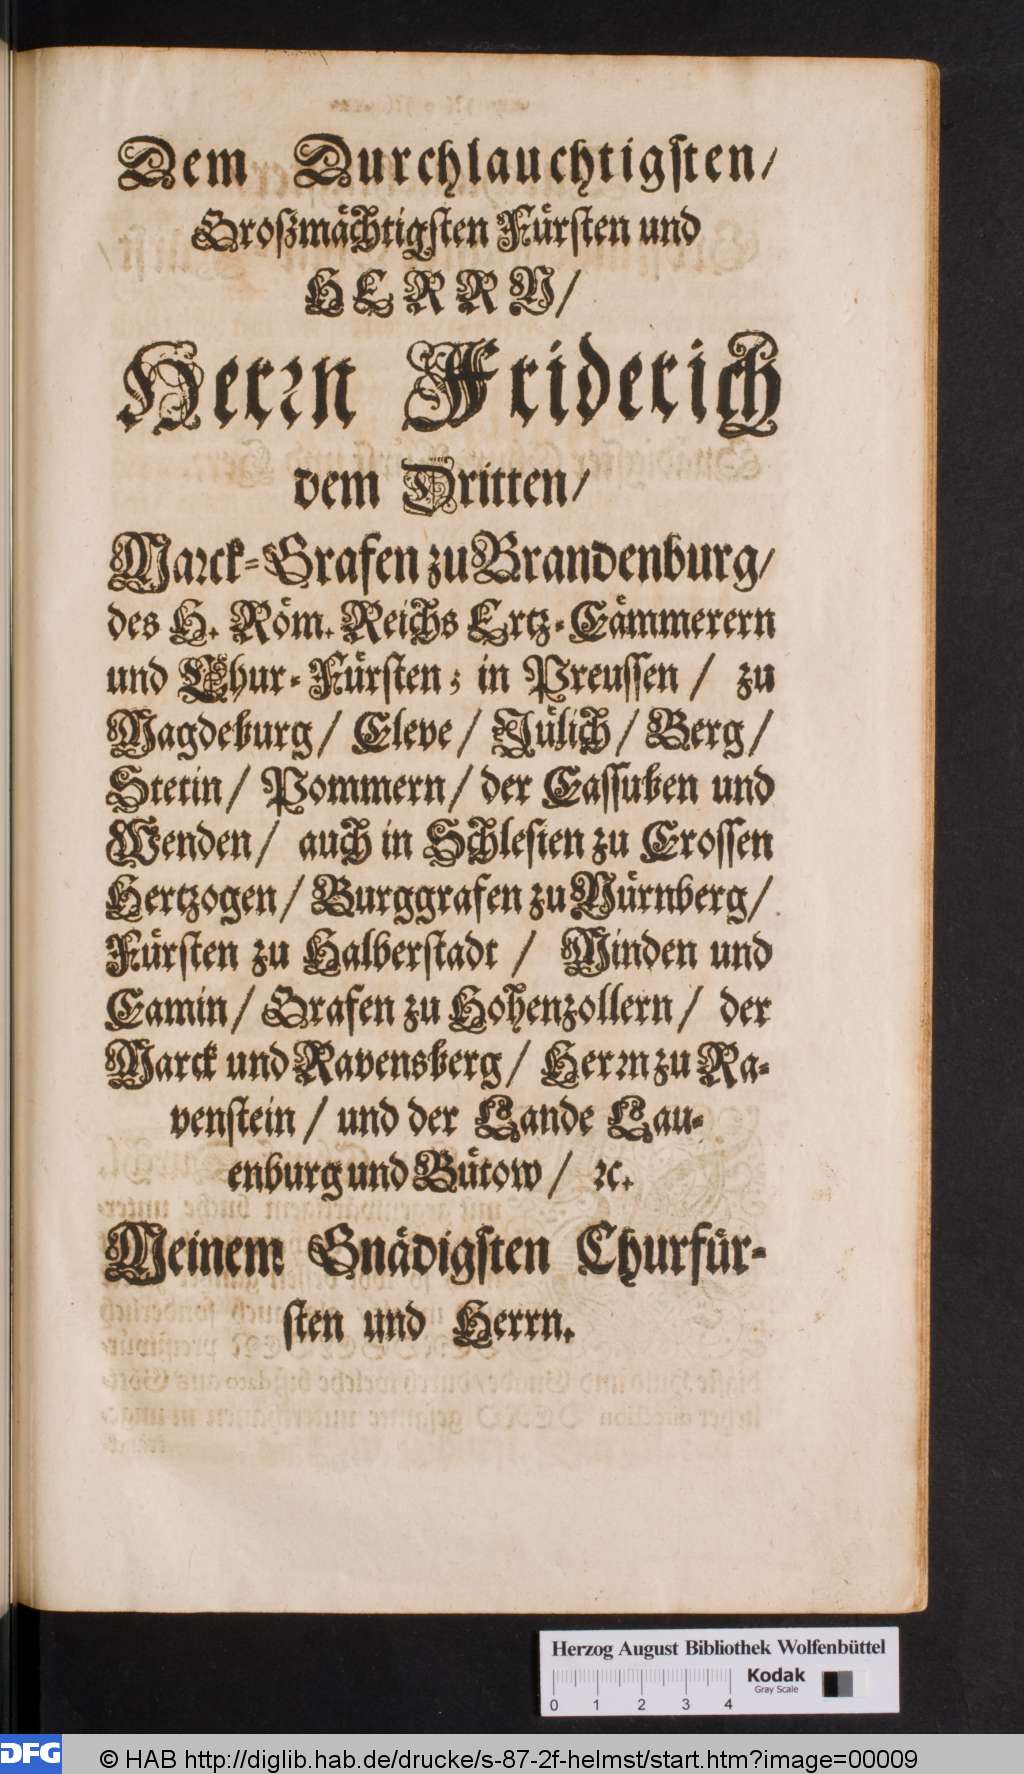 Dem Durchlauchtigsten/
Großmächtigsten Fürsten und
HERRN/
Herrn Friderich
dem Dritten/
Marck-Grafen zu Brandenburg/
des H. Röm. Reichs Ertz-Cämmerern
und Chur-Fürsten; in Preussen / zu
Magdeburg/ Cleve/ Jülich/ Berg/
Stetin/ Pommern/ der Cassuben und
Wenden/ auch in Schlesien zu Crossen
Hertzogen/ Burggrafen zu Nürnberg/
Fürsten zu Halberstadt / Minden und
Camin/ Grafen zu Hohenzollern/ der
Marck und Ravensberg/ Herrn zu Ra-
venstein / und der Lande Lau-
enburg und Bütow/ ꝛc.
Meinem Gnädigsten Churfür-
sten und Herrn.
Herzog August Bibliothek Wolfenbüttel
Kodak
Gray Scale
0 1 2 3 4
DFG © HAB http://diglib.hab.de/drucke/s-87-2f-helmst/start.htm?image=00009